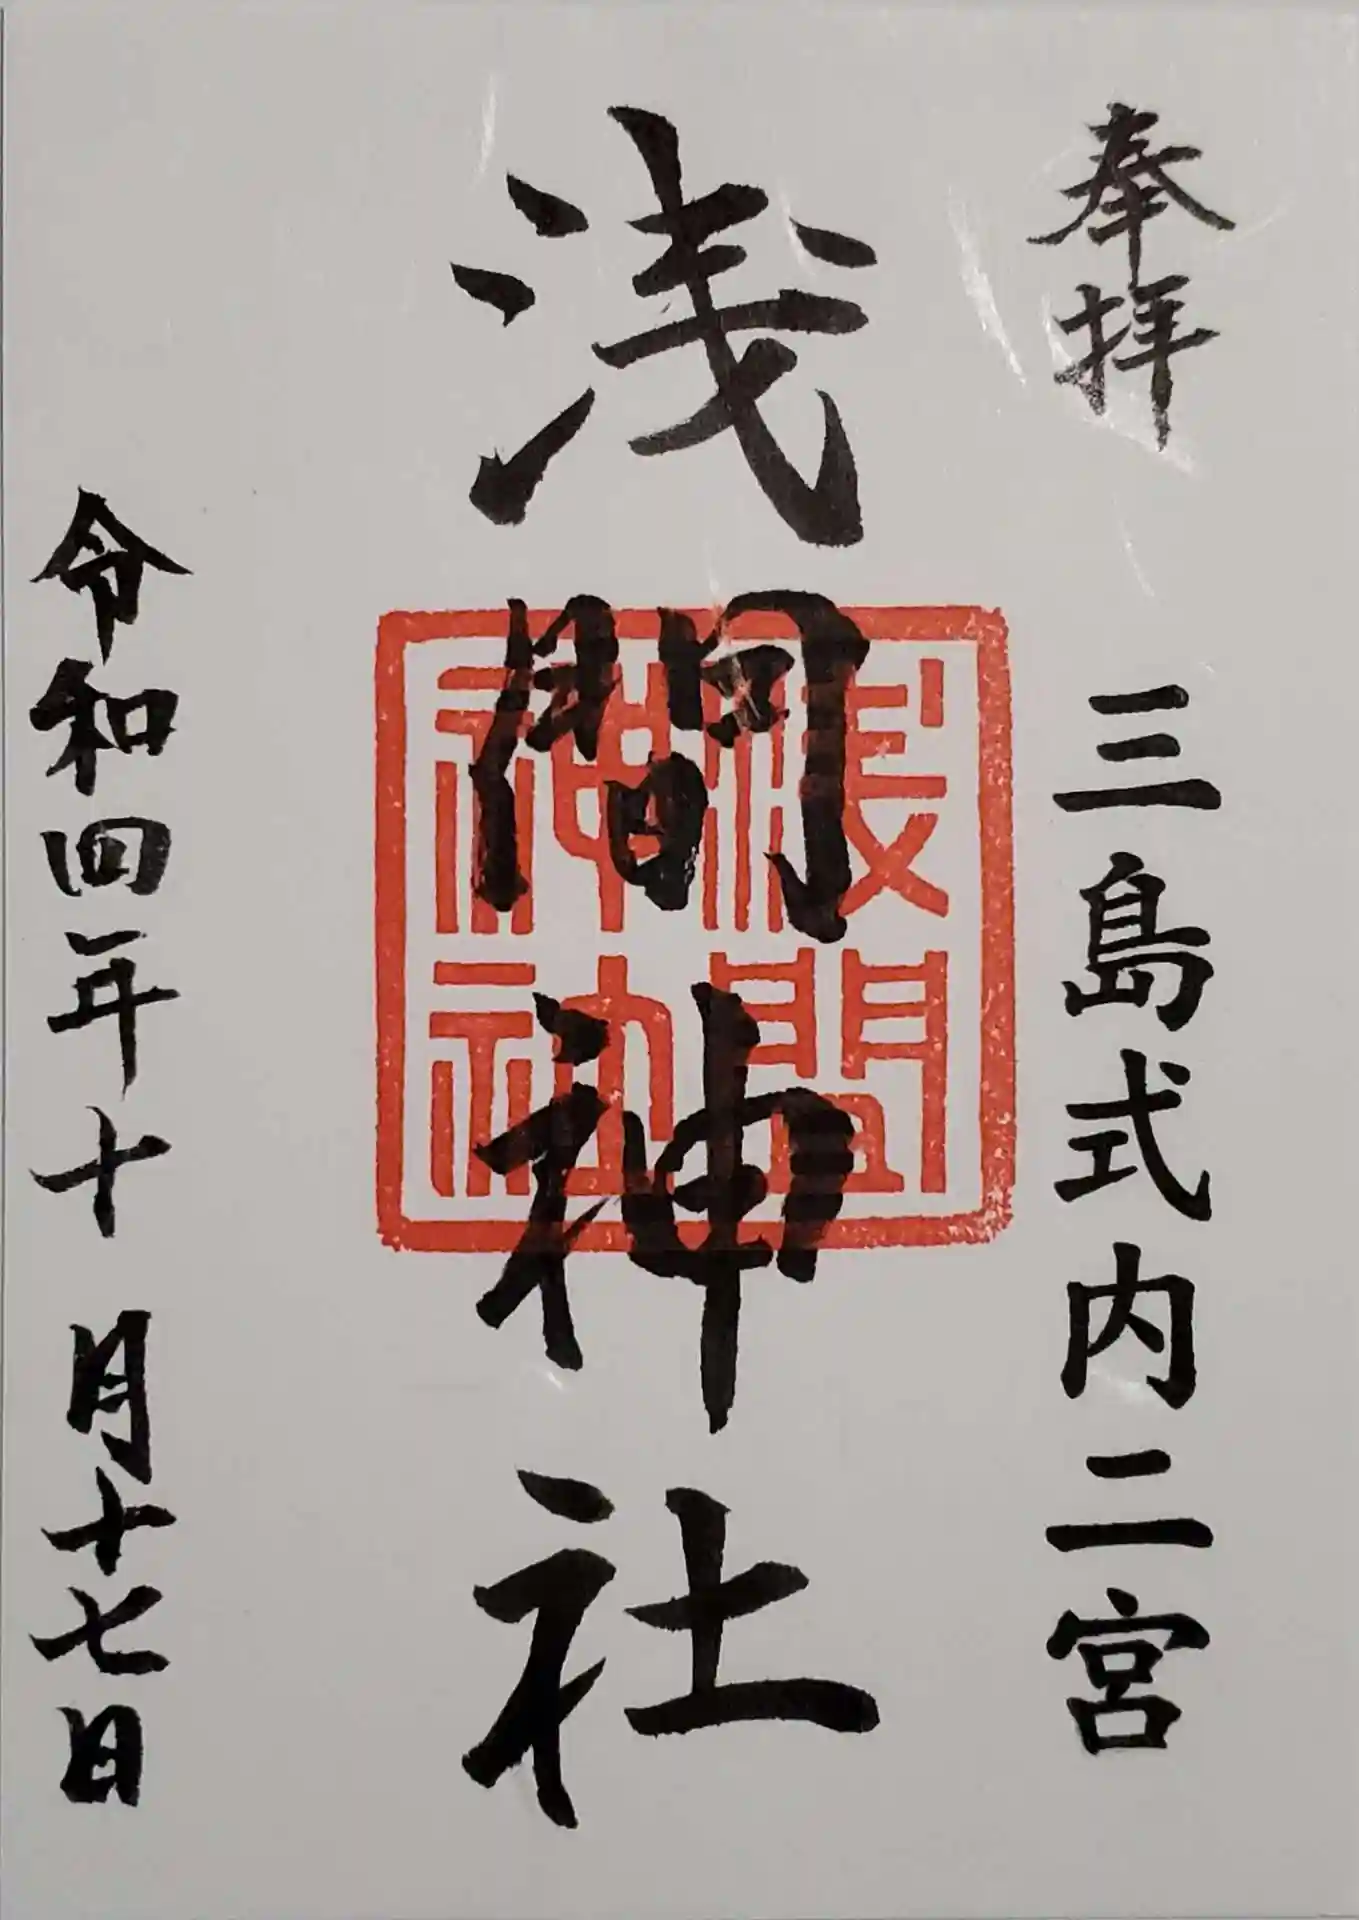 奉拝
三島式内二宮
浅間神社
浅間
神社
令和四年十月十七日